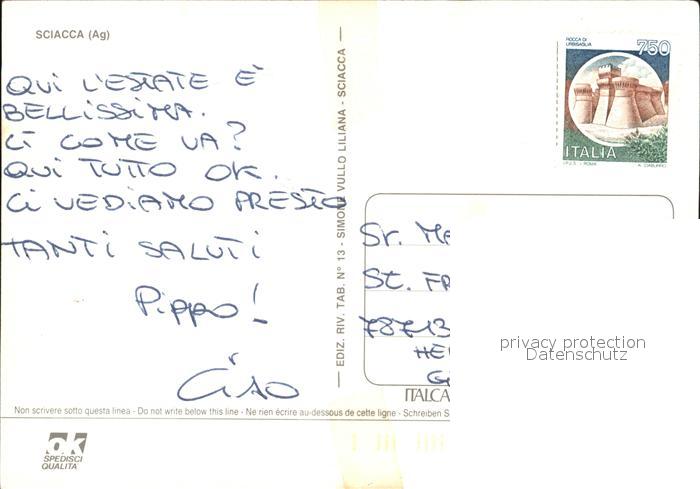 SCIACCA (Ag)
QUI L'ESTATE È
BELLISSIMA.
LÌ COME VA?
QUI TUTTO OK.
CI VEDIAMO PRESTO
TANTI SALUTI
Pippo!
CIAO
EDIZ. RIV. TAB. N° 13 - SIMONE VULLO LILIANA - SCIACCA
ROCCA DI
URBISAGLIA
750
ITALIA
I.P.Z.S. - ROMA
Sr.
St. FR
78713
HE
privacy protection
Datenschutz
ITALCA
Non scrivere sotto questa linea - Do not write below this line - Ne rien écrire au-dessous de cette ligne - Schreiben S
ok
SPEDISCI
QUALITA'